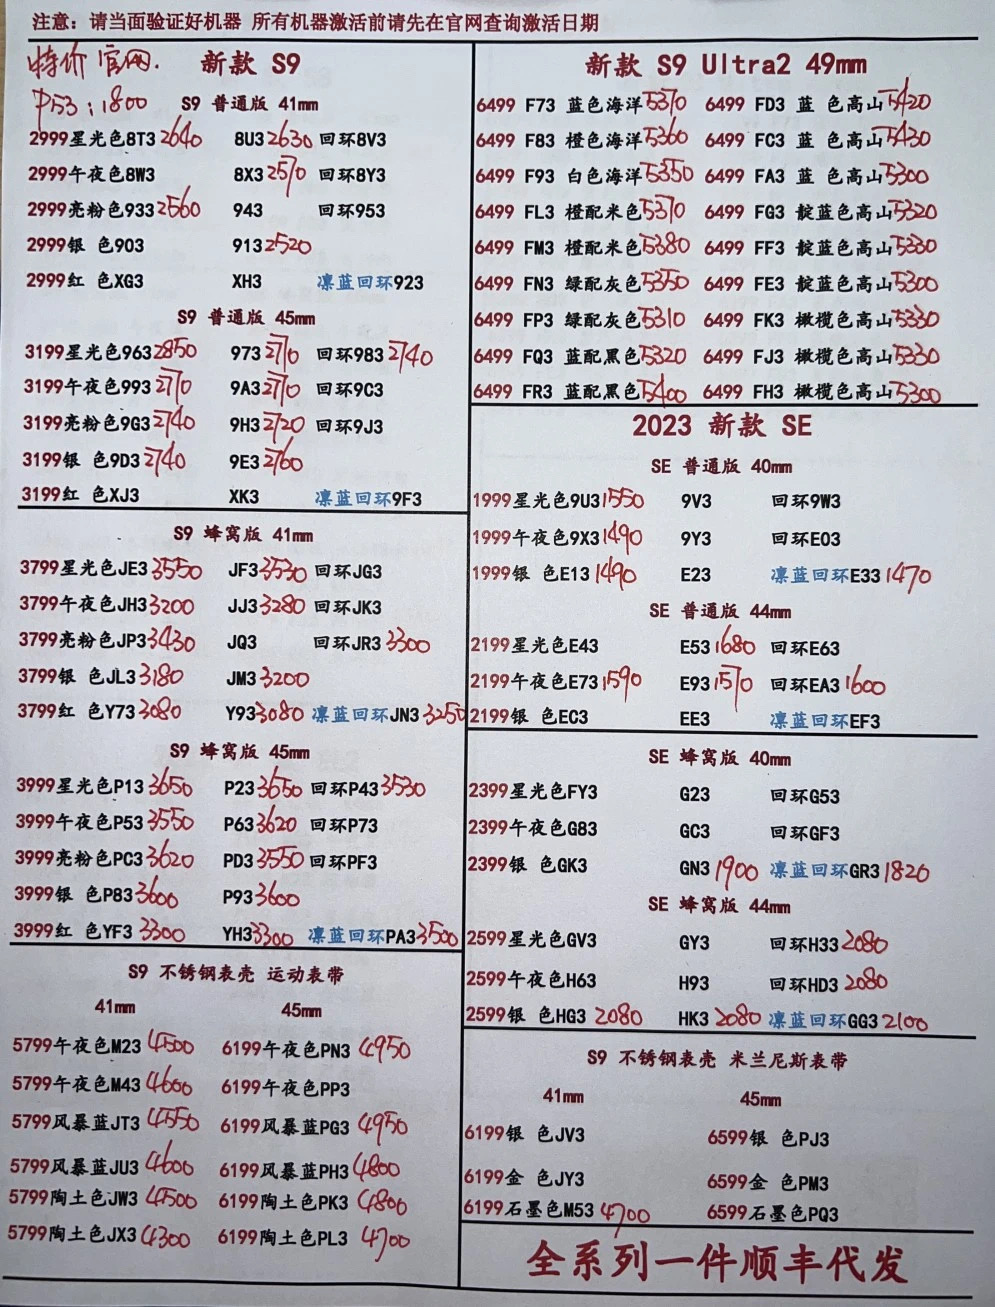 注意：请当面验证好机器 所有机器激活前请先在官网查询激活日期
特价 官网.
P53：1800
新款 S9
S9 普通版 41mm
2999星光色8T3 2640 8U3 2630 回环8V3
2999午夜色8W3 8X3 2570 回环8Y3
2999亮粉色933 2560 943 回环953
2999银 色903 913 2520
2999红 色XG3 XH3 凛蓝回环923
S9 普通版 45mm
3199星光色963 2850 973 2710 回环983 2740
3199午夜色993 2710 9A3 2710 回环9C3
3199亮粉色9G3 2740 9H3 2720 回环9J3
3199银 色9D3 2740 9E3 2760
3199红 色XJ3 XK3 凛蓝回环9F3
S9 蜂窝版 41mm
3799星光色JE3 3550 JF3 3530 回环JG3
3799午夜色JH3 3200 JJ3 3280 回环JK3
3799亮粉色JP3 3430 JQ3 回环JR3 3300
3799银 色JL3 3180 JM3 3200
3799红 色Y73 3080 Y93 3080 凛蓝回环JN3 3250
S9 蜂窝版 45mm
3999星光色P13 3650 P23 3650 回环P43 3530
3999午夜色P53 3550 P63 3620 回环P73
3999亮粉色PC3 3620 PD3 3550 回环PF3
3999银 色P83 3600 P93 3600
3999红 色YF3 3300 YH3 3300 凛蓝回环PA3 3500
S9 不锈钢表壳 运动表带
41mm 45mm
5799午夜色M23 4500 6199午夜色PN3 4950
5799午夜色M43 4600 6199午夜色PP3
5799风暴蓝JT3 4550 6199风暴蓝PG3 4950
5799风暴蓝JU3 4600 6199风暴蓝PH3 4800
5799陶土色JW3 4500 6199陶土色PK3 4800
5799陶土色JX3 4300 6199陶土色PL3 4700
新款 S9 Ultra2 49mm
6499 F73 蓝色海洋 5370 6499 FD3 蓝 色高山 5420
6499 F83 橙色海洋 5360 6499 FC3 蓝 色高山 5430
6499 F93 白色海洋 5350 6499 FA3 蓝 色高山 5300
6499 FL3 橙配米色 5370 6499 FG3 靛蓝色高山 5320
6499 FM3 橙配米色 5380 6499 FF3 靛蓝色高山 5330
6499 FN3 绿配灰色 5350 6499 FE3 靛蓝色高山 5300
6499 FP3 绿配灰色 5310 6499 FK3 橄榄色高山 5330
6499 FQ3 蓝配黑色 5320 6499 FJ3 橄榄色高山 5330
6499 FR3 蓝配黑色 5400 6499 FH3 橄榄色高山 5300
2023 新款 SE
SE 普通版 40mm
1999星光色9U3 1550 9V3 回环9W3
1999午夜色9X3 1490 9Y3 回环E03
1999银 色E13 1490 E23 凛蓝回环E33 1470
SE 普通版 44mm
2199星光色E43 E53 1680 回环E63
2199午夜色E73 1590 E93 1570 回环EA3 1600
2199银 色EC3 EE3 凛蓝回环EF3
SE 蜂窝版 40mm
2399星光色FY3 G23 回环G53
2399午夜色G83 GC3 回环GF3
2399银 色GK3 GN3 1900 凛蓝回环GR3 1820
SE 蜂窝版 44mm
2599星光色GV3 GY3 回环H33 2080
2599午夜色H63 H93 回环HD3 2080
2599银 色HG3 2080 HK3 2080 凛蓝回环GG3 2100
S9 不锈钢表壳 米兰尼斯表带
41mm 45mm
6199银 色JV3 6599银 色PJ3
6199金 色JY3 6599金 色PM3
6199石墨色M53 4700 6599石墨色PQ3
全系列一件顺丰代发